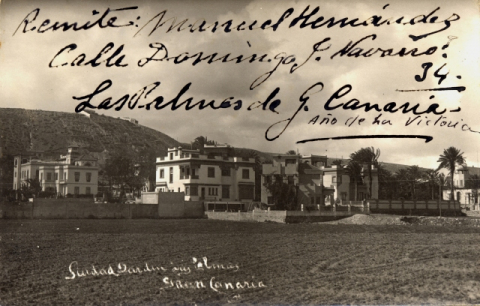 Remite: Manuel Hernández
Calle Domingo J. Navarro
34.
Las Palmas de G. Canaria
Año de La Victoria
Ciudad Jardin Las Palmas
Gran Canaria